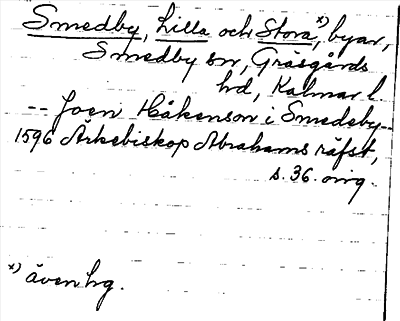 Smedby, Lilla och Stora x), byar,
Smedby sn, Gräsgårds
hd, Kalmar l.
-- Joen Håkenson i Smedeby --
1596 Ärkebiskop Abrahams räfst,
s. 36. orig.
x) även hg.